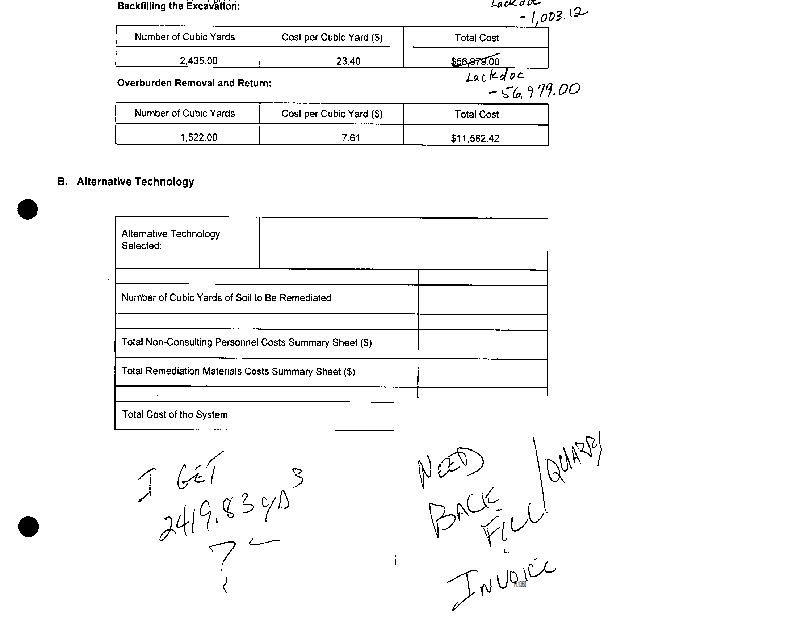 Backfilling the Excavation:
Lack doc
- 1,003.12
Number of Cubic Yards Cost per Cubic Yard ($) Total Cost
2,435.00 23.40 $56,979.00
Lack doc
- 56,979.00
Overburden Removal and Return:
Number of Cubic Yards Cost per Cubic Yard ($) Total Cost
1,522.00 7.61 $11,582.42
B. Alternative Technology
Alternative Technology
Selected:
Number of Cubic Yards of Soil to Be Remediated
Total Non-Consulting Personnel Costs Summary Sheet ($)
Total Remediation Materials Costs Summary Sheet ($)
Total Cost of the System
I GET
2419.83 yD3
?
NEED
BACK
FILL / QUARRY
INVOICE